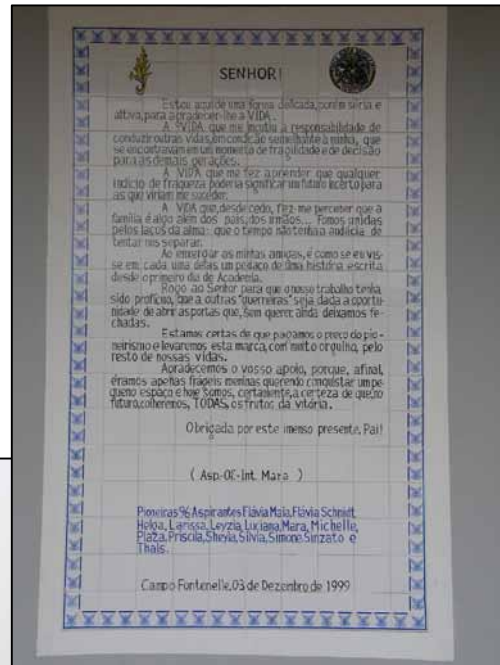 SENHOR!
Estou aqui de uma forma delicada, porém séria e
altiva, para agradecer-lhe a VIDA.
A VIDA que me incutiu a responsabilidade de
conduzir outras vidas, em condição semelhante à minha, que
se encontravam em um momento de fragilidade e de decisão
para as demais gerações.
A VIDA que me fez aprender que qualquer
indício de fraqueza poderia significar um futuro incerto para
as que viriam me suceder.
A VIDA que, desde cedo, fez-me perceber que a
família é algo além dos pais, dos irmãos... Fomos unidas
pelos laços da alma: que o tempo não tenha a audácia de
tentar nos separar.
Ao enxergar as minhas amigas, é como se eu vis-
se em cada uma delas um pedaço de uma história escrita
desde o primeiro dia de Academia.
Rogo ao Senhor para que o nosso trabalho tenha
sido profícuo, que a outras "guerreiras" seja dada a oportu-
nidade de abrir as portas que, sem querer, ainda deixamos fe-
chadas.
Estamos certas de que pagamos o preço do pio-
neirismo e levaremos esta marca, com muito orgulho, pelo
resto de nossas vidas.
Agradecemos o vosso apoio, porque, afinal,
éramos apenas frágeis meninas querendo conquistar um pe-
queno espaço e hoje somos, certamente, a certeza de que, no
futuro, colheremos, TODAS, os frutos da vitória.
Obrigada por este imenso presente, Pai!
( Asp-Of-Int. Mara )
Pioneiras 96 Aspirantes Flávia Maia, Flávia Schmidt,
Heloa, Larissa, Leyzia, Luciana, Mara, Michelle,
Plaza, Priscila, Sheyla, Silvia, Simone Sinzato e
Thaís.
Campo Fontenelle, 03 de Dezembro de 1999